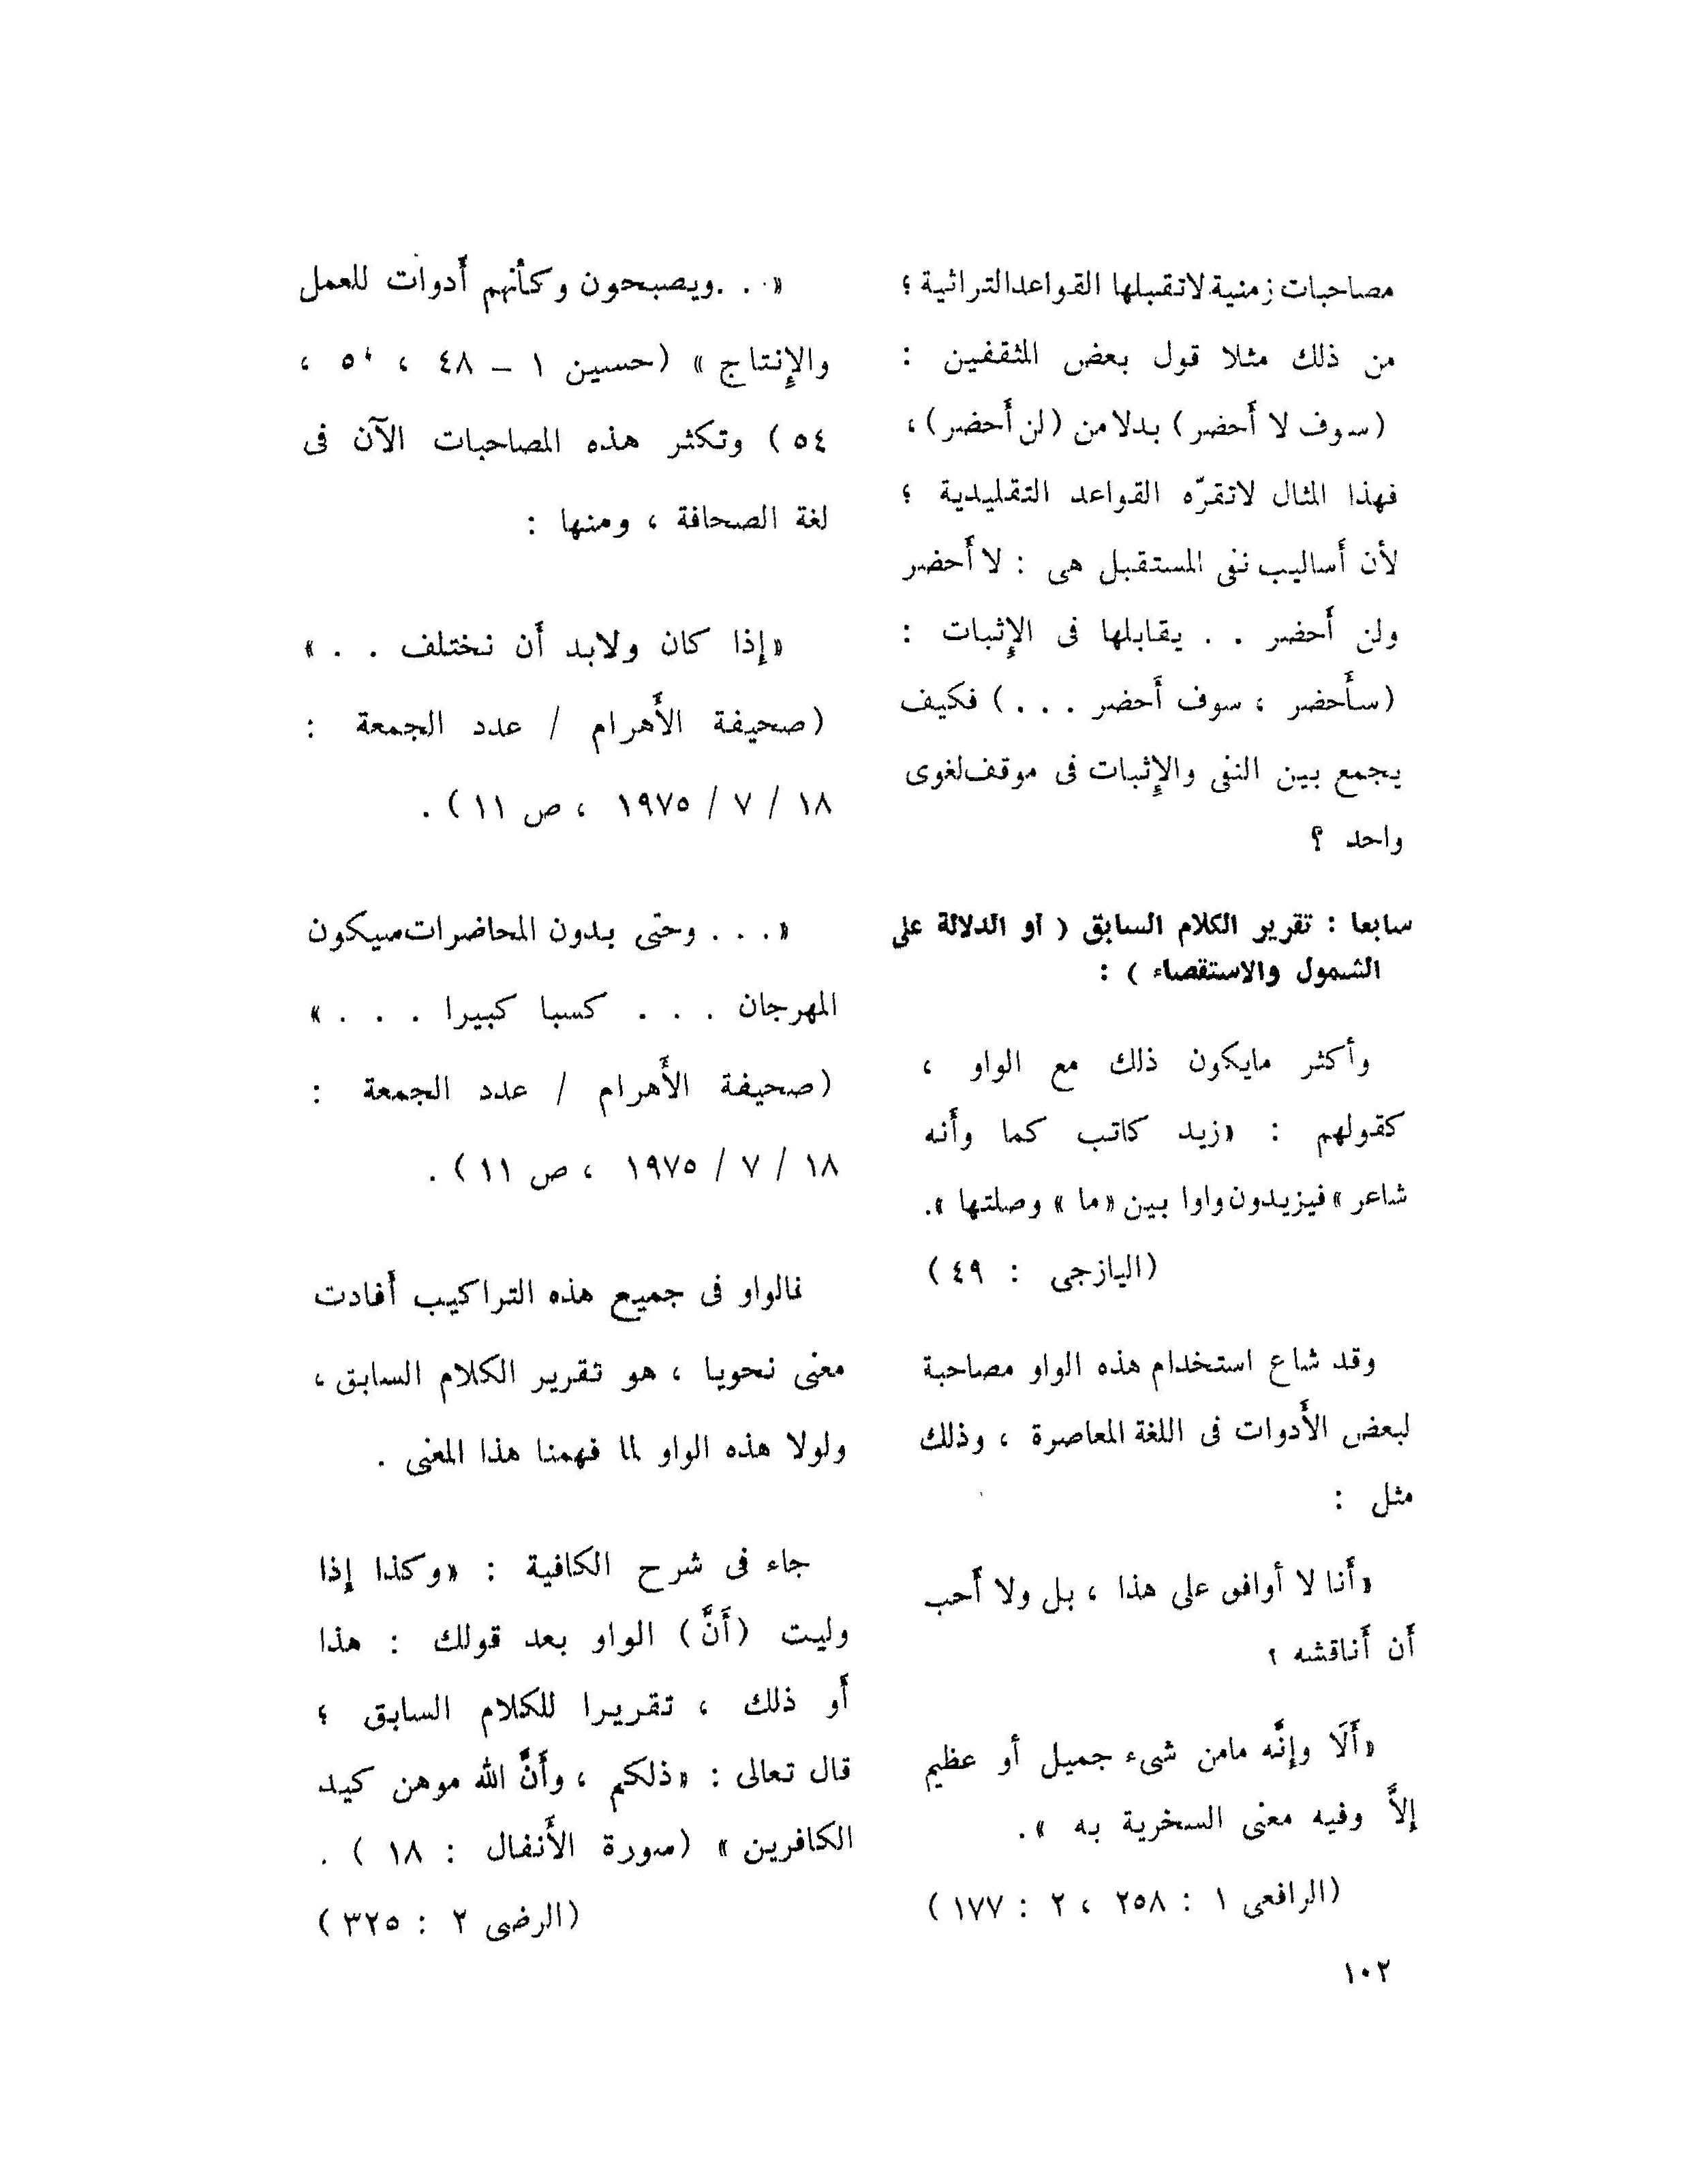 مصاحبات زمنية لاتقبلها القواعدالتراثية ؛
من ذلك مثلا قول بعض المثقفين :
(سوف لا أَحضر) بدلا من (لن أَحضر) ،
فهذا المثال لاتقرّه القواعد التقليدية ؛
لأن أَساليب نفى المستقبل هى : لا أَحضر
ولن أَحضر . . يقابلها فى الإِثبات :
(سأَحضر ، سوف أَحضر . . .) فكيف
يجمع بين النفى والإِثبات فى موقف لغوى
واحد ؟
سابعا : تقرير الكلام السابق ( أو الدلالة على
الشمول والاستقصاء ) :
وأكثر مايكون ذلك مع الواو ،
كقولهم : «زيد كاتب كما وأَنه
شاعر» فيزيدون واوا بين «ما» وصلتها » .
(اليازجى : ٤٩)
وقد شاع استخدام هذه الواو مصاحبة
لبعض الأَدوات فى اللغة المعاصرة ، وذلك
مثل :
«أَنا لا أوافق على هذا ، بل ولا أَحب
أَن أَناقشه ؟
«أَلَا وإِنَّه مامن شىء جميل أو عظيم
إِلاَّ وفيه معنى السخرية به » .
(الرافعى ١ : ٢٥٨ ، ٢ : ١٧٧)
١٠٢
« . . .ويصبحون وكأنهم أَدوات للعمل
والإِنتاج » (حسين ١ – ٤٨ ، ٥٠ ،
٥٤) وتكثر هذه المصاحبات الآن فى
لغة الصحافة ، ومنها :
«إِذا كان ولابد أَن نختلف . . »
(صحيفة الأَهرام / عدد الجمعة :
١٨ / ٧ / ١٩٧٥ ، ص ١١) .
« . . . وحتى بدون المحاضرات سيكون
المهرجان . . . كسبا كبيرا . . . »
(صحيفة الأَهرام / عدد الجمعة :
١٨ / ٧ / ١٩٧٥ ، ص ١١) .
فالواو فى جميع هذه التراكيب أَفادت
معنى نحويا ، هو تقرير الكلام السابق ،
ولولا هذه الواو لما فهمنا هذا المعنى .
جاء فى شرح الكافية : «وكذا إِذا
وليت (أَنَّ) الواو بعد قولك : هذا
أَو ذلك ، تقريرا للكلام السابق ؛
قال تعالى : «ذلكم ، وأَنَّ الله موهن كيد
الكافرين » (سورة الأَنفال : ١٨ ) .
(الرضى ٢ : ٣٢٥)